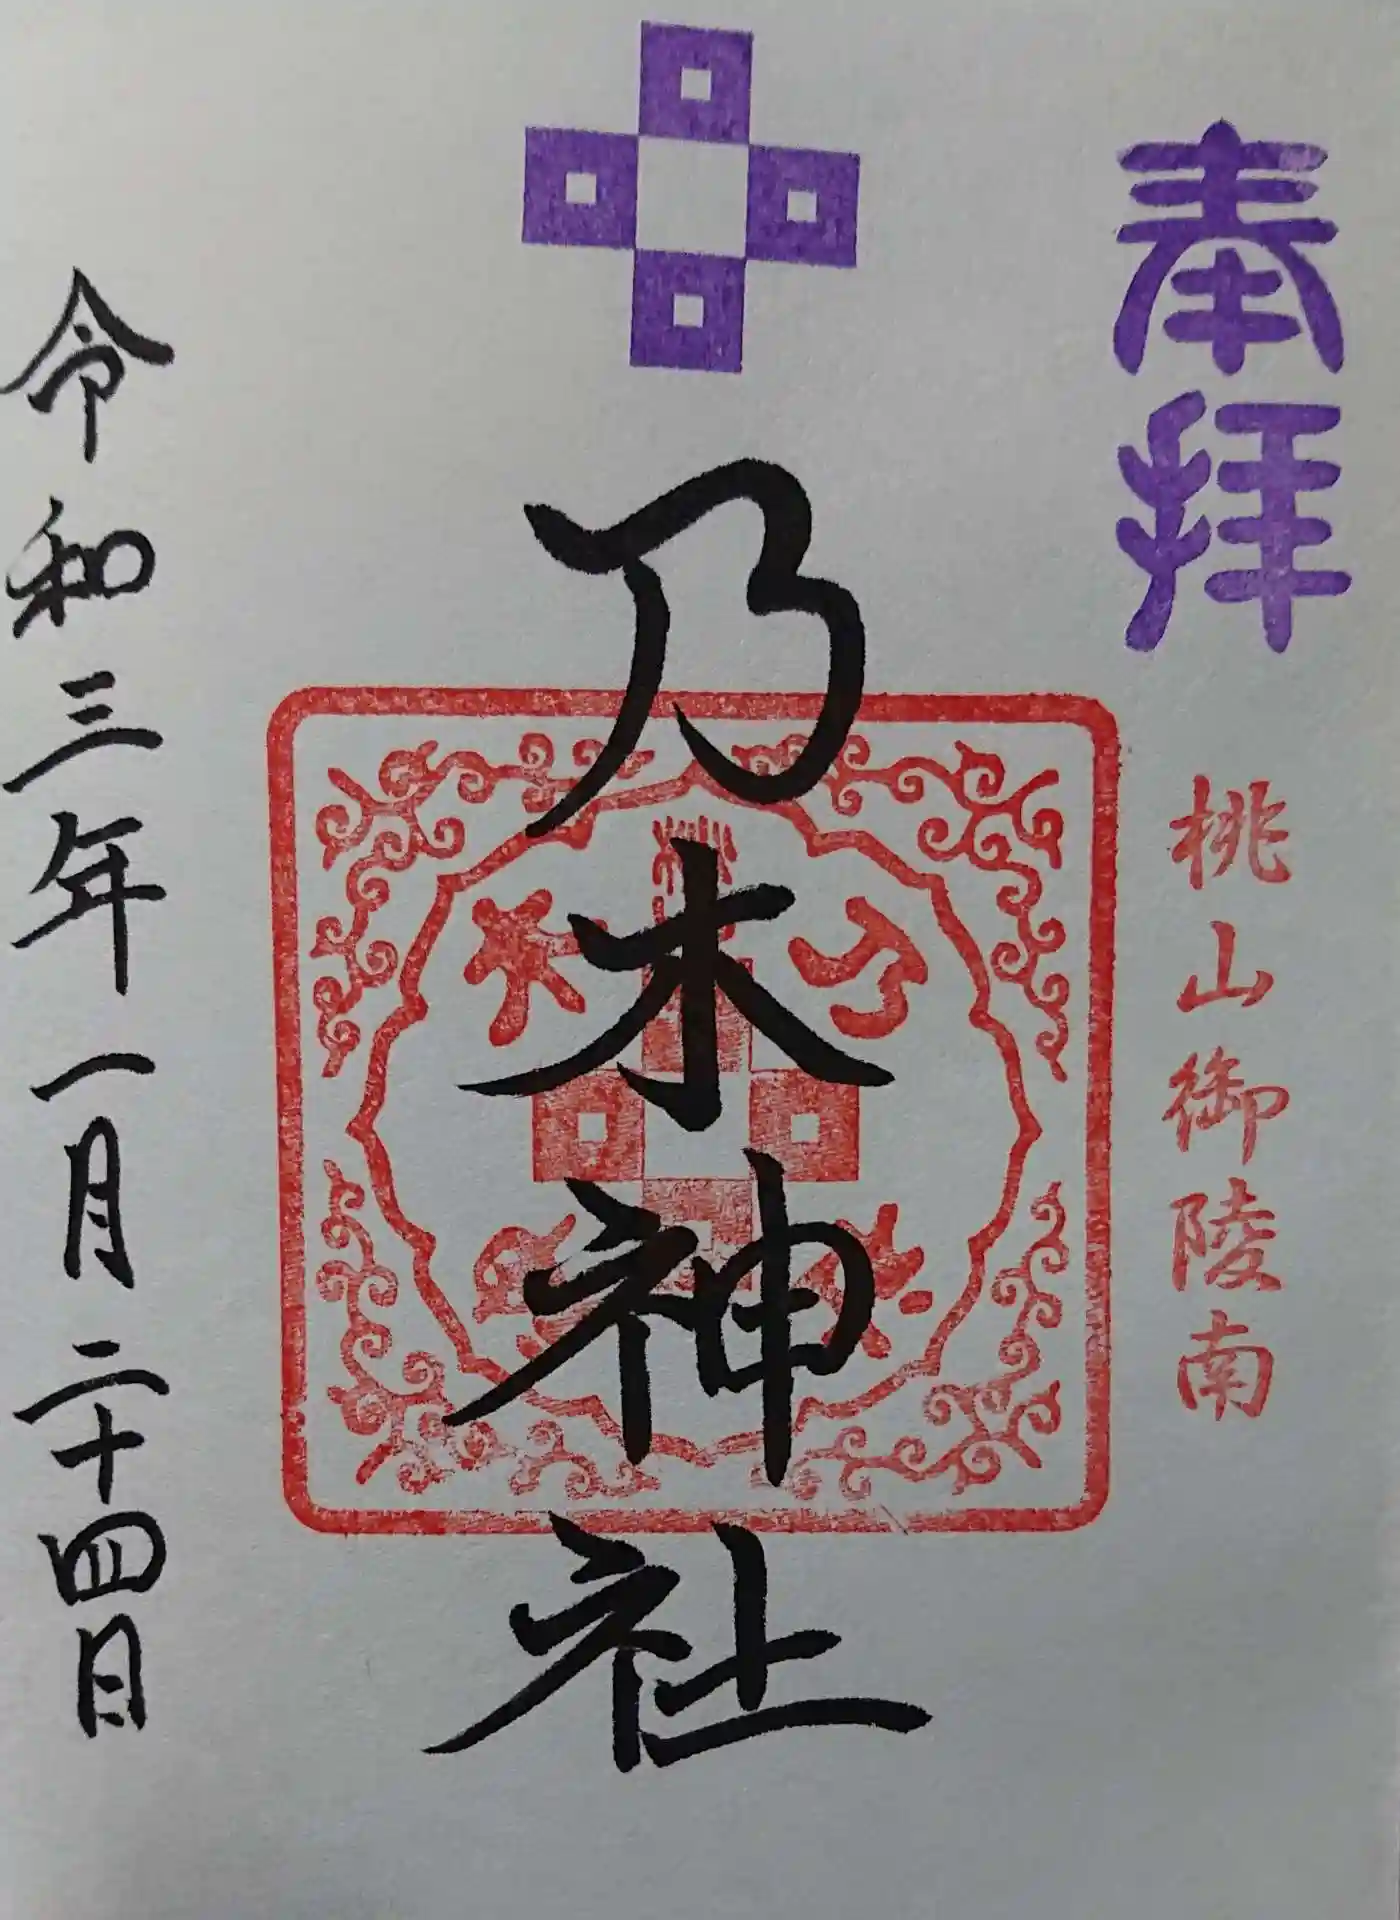 奉拝
桃山御陵南
乃木神社
令和三年一月二十四日